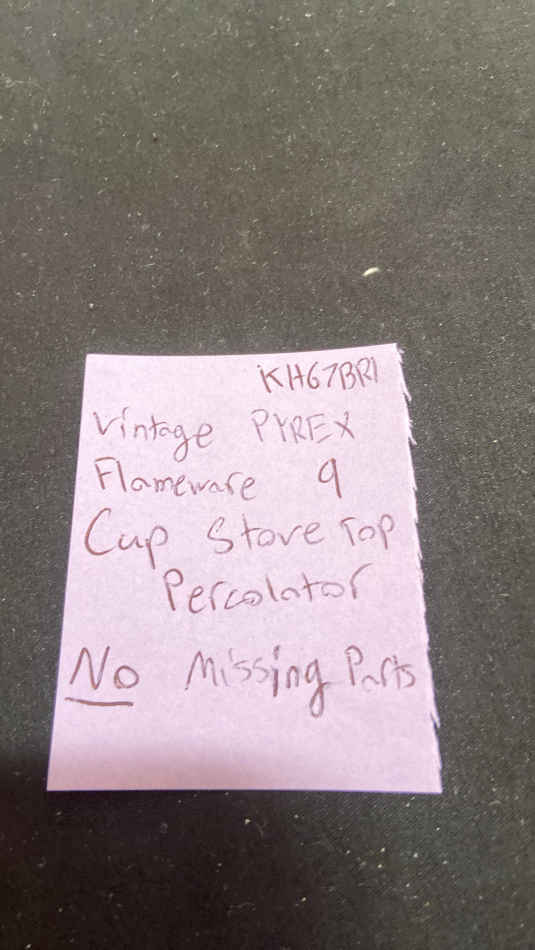 KH67BR1
Vintage PYREX
Flameware 9
Cup Stove Top
Percolator
No Missing Parts